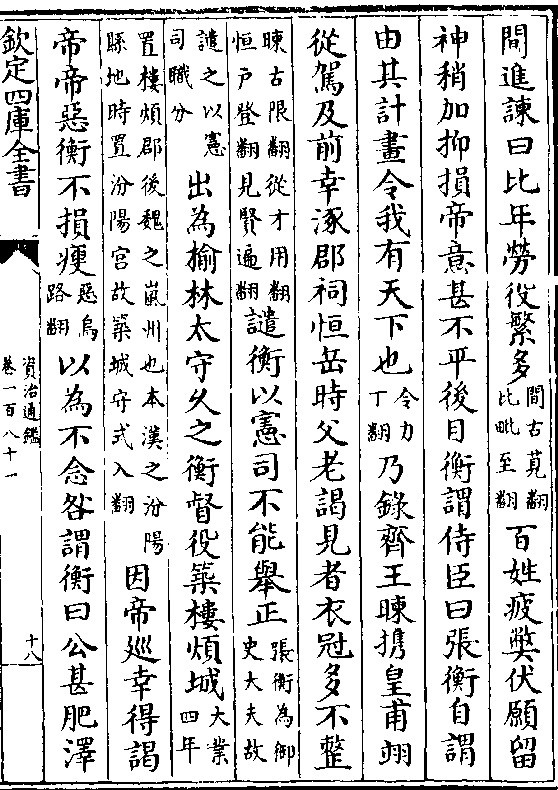 間進諫曰比年勞役繁多間古莧翻比毗至翻百姓疲弊伏願留
神稍加抑損帝意甚不平後目衡謂侍臣曰張衡自謂
由其計畫令我有天下也令力丁翻乃錄齊王暕攜皇甫詡
從駕及前幸涿郡祠恒岳時父老謁見者衣冠多不整
暕古限翻從才用翻恒戶登翻見賢遍翻譴衡以憲司不能舉正張衡為御史大夫故
譴之以憲司職分出為榆林太守久之衡督役築樓煩城大業四年
置樓煩郡後魏之嵐州也本漢之汾陽縣地時置汾陽宮故築城守式入翻因帝巡幸得謁
帝帝惡衡不損瘦惡烏路翻以為不念咎謂衡曰公甚肥澤
欽定四庫全書
資治通鑑
卷一百八十一
十八